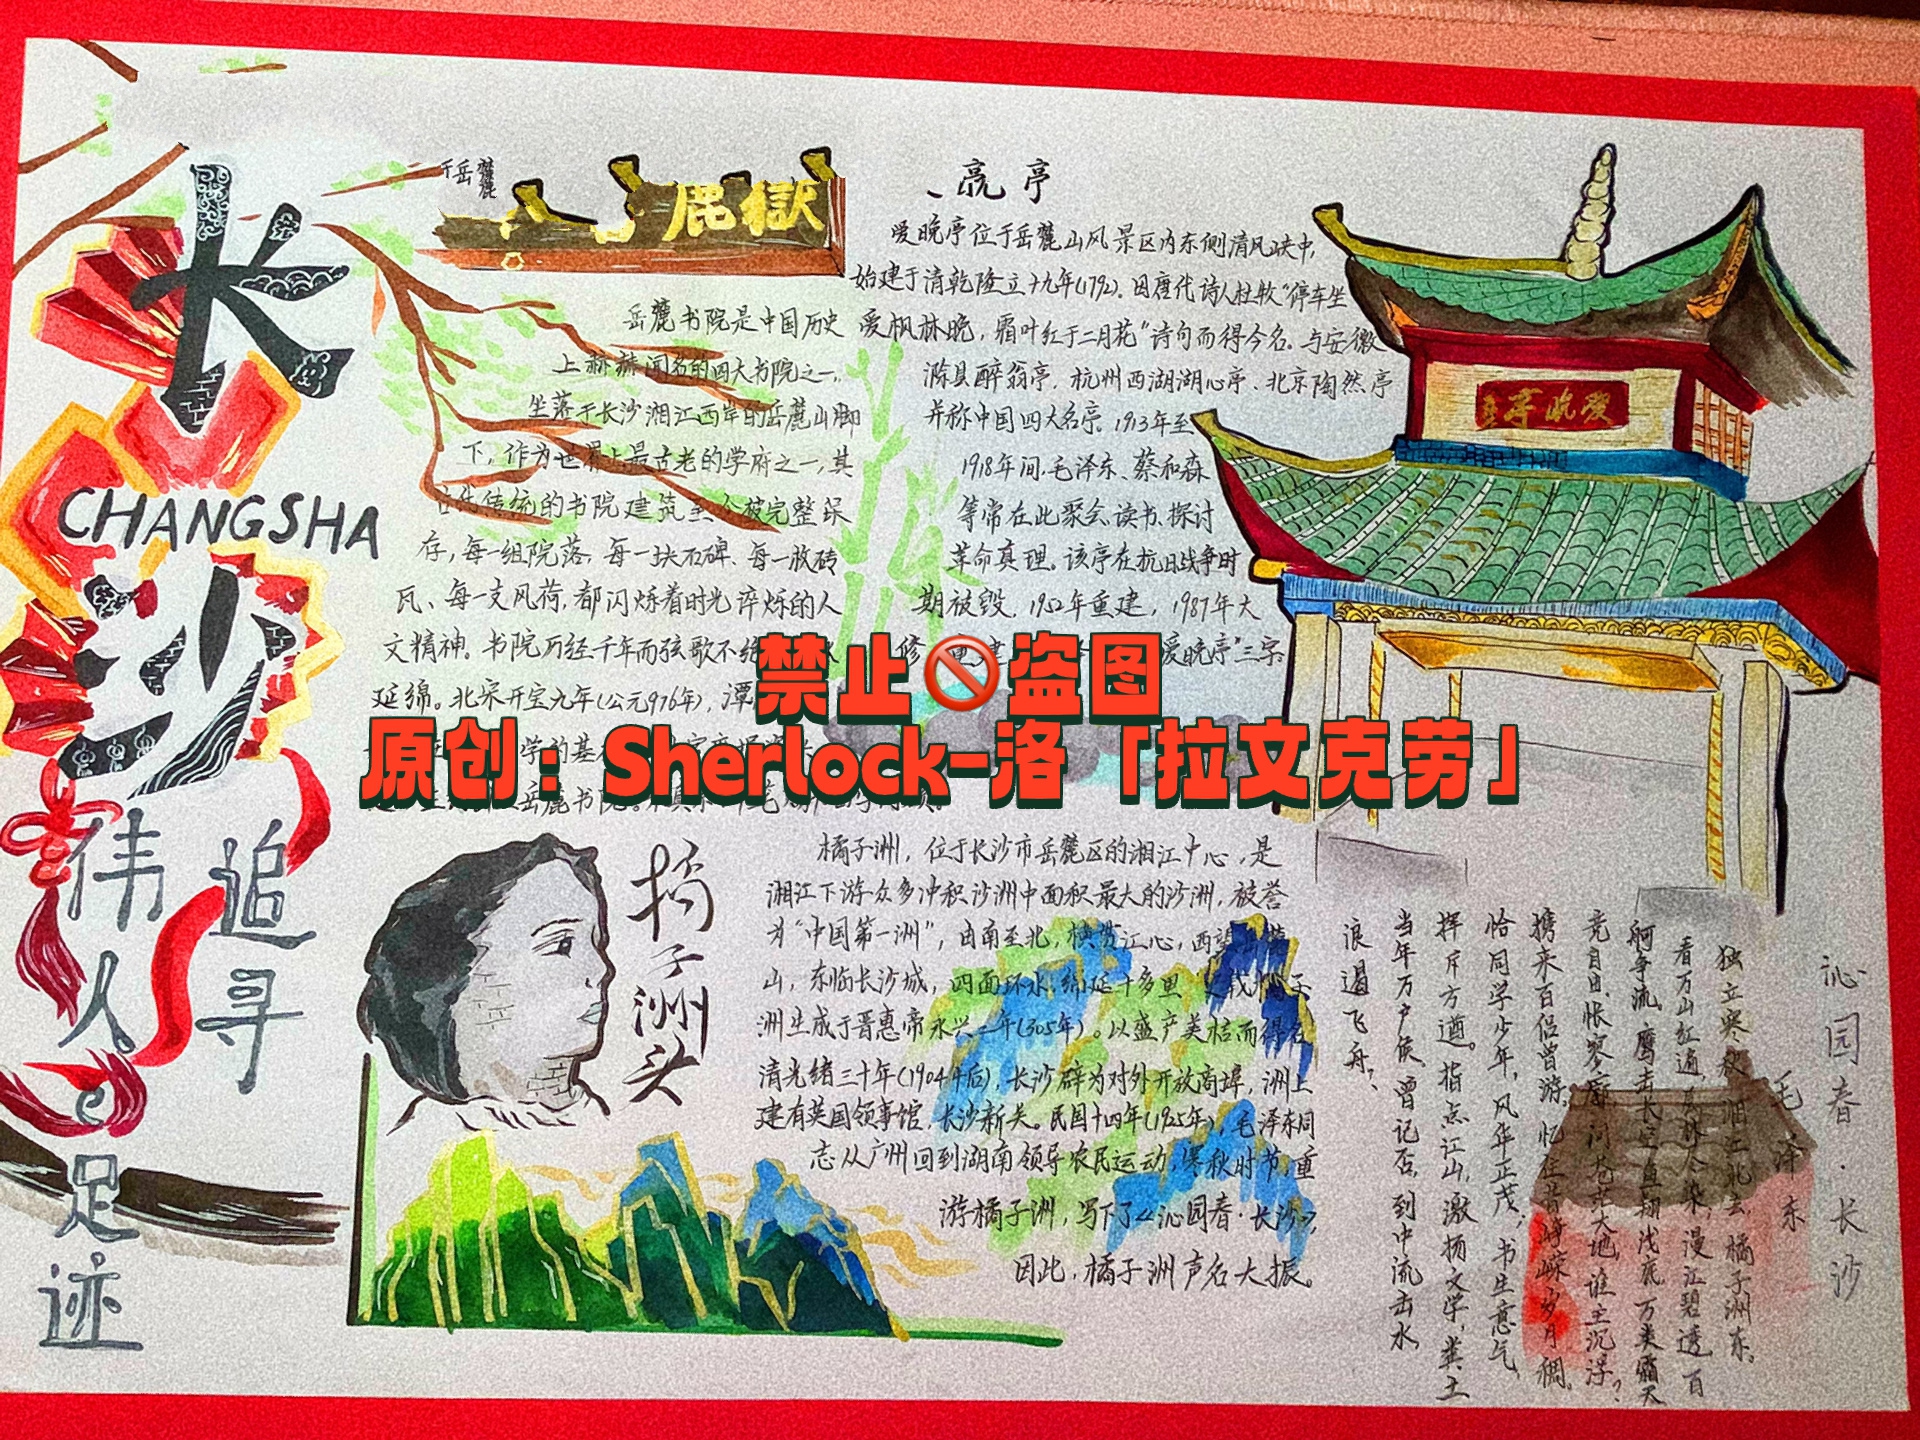 长
CHANGSHA
沙
追寻
伟人足迹
岳麓
麓嶽
亭
岳麓书院是中国历史
上赫赫闻名的四大书院之一,
坐落于长沙湘江西岸的岳麓山脚
下,作为世界上最古老的学府之一,其
传统的书院建筑至今被完整保
存,每一组院落,每一块石碑、每一枚砖
瓦、每一支风荷,都闪烁着时光淬烁的人
文精神。书院历经千年而弦歌不绝
延绵。北宋开宝九年(公元976年),潭
学的基
岳麓书院。
爱晚亭位于岳麓山风景区内东侧清风峡中,
始建于清乾隆五十九年(1792)。因唐代诗人杜牧“停车坐
爱枫林晚,霜叶红于二月花”诗句而得今名。与安徽
滁县醉翁亭、杭州西湖湖心亭、北京陶然亭
并称中国四大名亭。1913年至
1918年间,毛泽东、蔡和森
等常在此聚会、读书、探讨
革命真理。该亭在抗日战争时
期被毁,1952年重建,1987年大
修 重建 爱晚亭”三字
爱晚亭
禁止🚫盗图
原创:Sherlock-洛「拉文克劳」
橘子洲头
橘子洲,位于长沙市岳麓区的湘江中心,是
湘江下游众多冲积沙洲中面积最大的沙洲,被誉
为“中国第一洲”,由南至北,横贯江心,西望岳麓
山,东临长沙城,四面环水,绵延十多里
洲生成于晋惠帝永兴二年(305年)。以盛产美桔而得名
清光绪三十年(1904年后),长沙辟为对外开放商埠,洲上
建有英国领事馆,长沙新关。民国十四年(1925年),毛泽东同
志从广州回到湖南领导农民运动,寒秋时节,重
游橘子洲,写下了《沁园春·长沙》,
因此,橘子洲声名大振。
沁园春·长沙
毛泽东
独立寒秋,湘江北去,橘子洲东。
看万山红遍,层林尽染,漫江碧透,百
舸争流。鹰击长空,鱼翔浅底,万类霜天
竞自由。怅寥廓,问苍茫大地,谁主沉浮?
携来百侣曾游。忆往昔峥嵘岁月稠。
恰同学少年,风华正茂;书生意气,
挥斥方遒。指点江山,激扬文字,粪土
当年万户侯。曾记否,到中流击水,
浪遏飞舟?